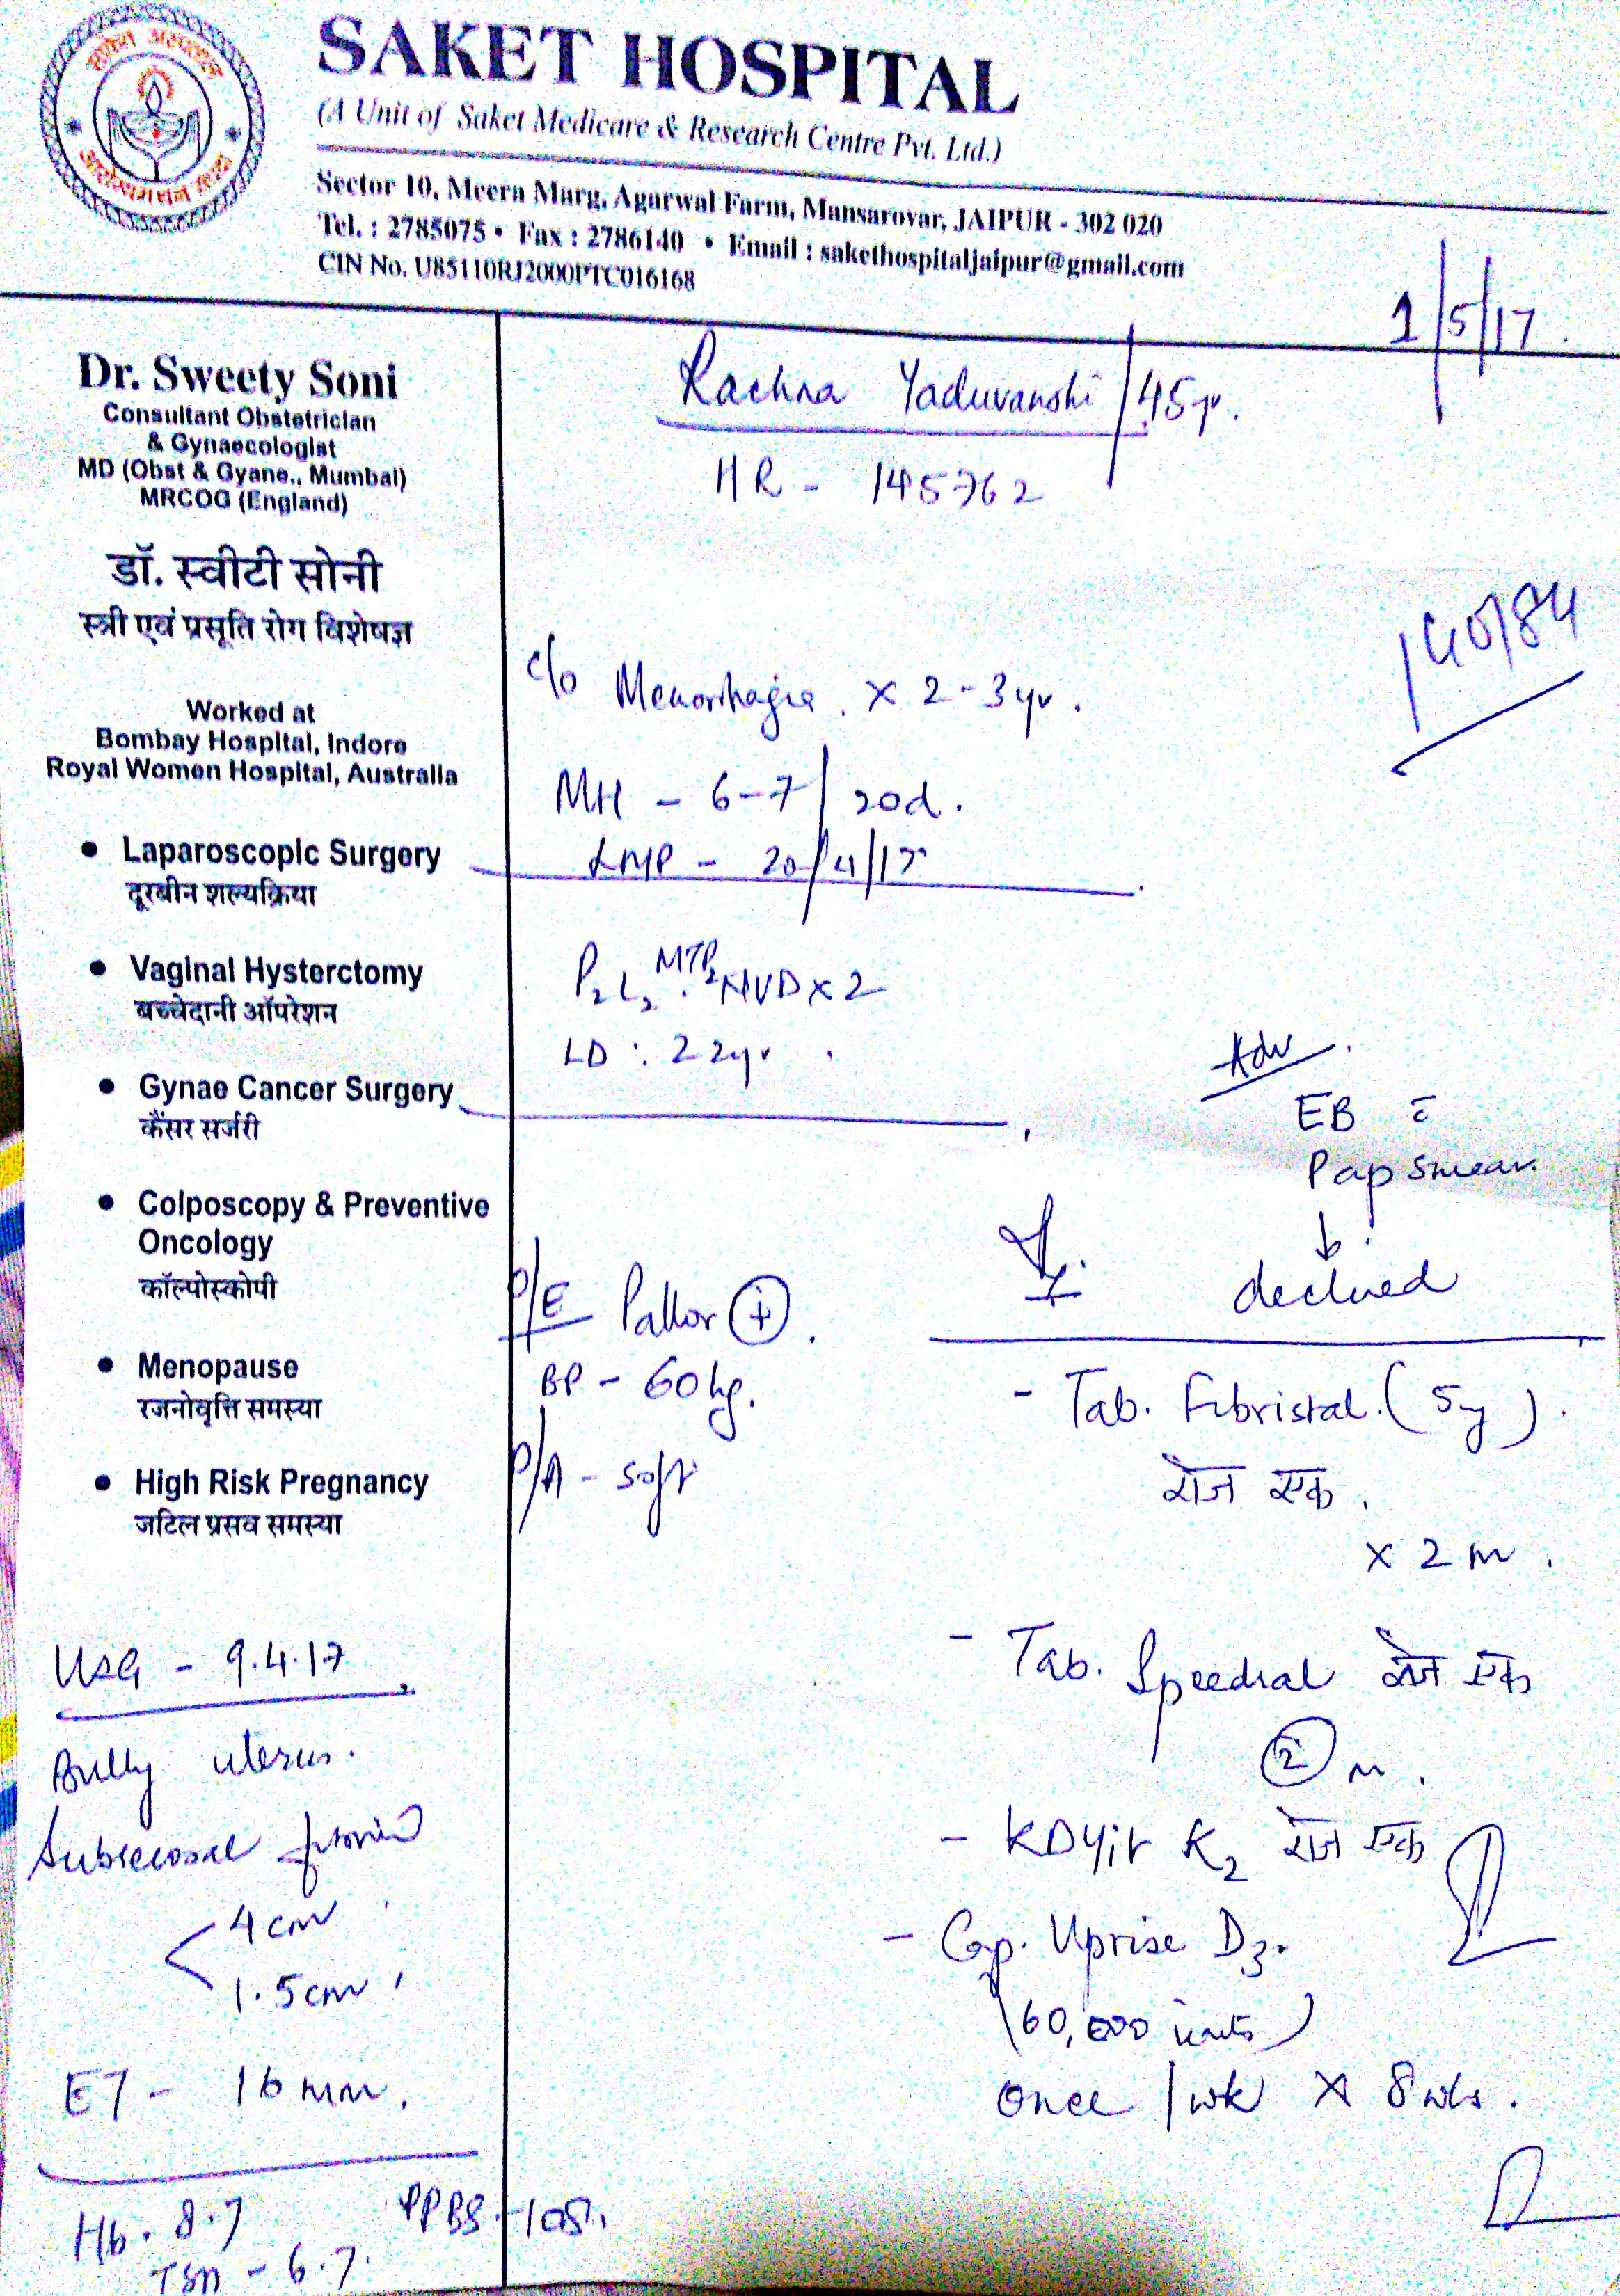 SAKET HOSPITAL
(A Unit of Saket Medicare & Research Centre Pvt. Ltd.)
Sector 10, Meera Marg, Agarwal Farm, Mansarovar, JAIPUR - 302 020
Tel. : 2785075 • Fax : 2786140 • Email : sakethospitaljaipur@gmail.com
CIN No. U85110RJ2000PTC016168
1/5/17
Dr. Sweety Soni
Consultant Obstetrician
& Gynaecologist
MD (Obst & Gyane., Mumbai)
MRCOG (England)
डॉ. स्वीटी सोनी
स्त्री एवं प्रसूति रोग विशेषज्ञ
Worked at
Bombay Hospital, Indore
Royal Women Hospital, Australia
• Laparoscopic Surgery
दूरबीन शल्यक्रिया
• Vaginal Hysterctomy
बच्चेदानी ऑपरेशन
• Gynae Cancer Surgery
कैंसर सर्जरी
• Colposcopy & Preventive
Oncology
कॉल्पोस्कोपी
• Menopause
रजनोवृत्ति समस्या
• High Risk Pregnancy
जटिल प्रसव समस्या
USG - 9.4.17
Bulky uterus.
Subserosal fibroid
4 cm
1.5 cm
ET - 16 mm.
Hb. 8.7
PPBS - 108
TSH - 6.7
Rachna Yaduvanshi / 45 yr.
HR - 145762
140/84
c/o Menorrhagia. x 2-3 yr.
MH - 6-7/20d.
LMP - 20/4/17
P2 L2 MTP2 NVD x 2
LD : 22yr
Adv.
EB c̄
Pap smear.
↓
declined
P/E Pallor (+).
BP - 60 kg.
P/A - soft
- Tab. Fibristal. (5mg).
रोज एक.
x 2 m.
- Tab. रोज एक
(2) m.
- K2 रोज एक
- Cap. Uprise D3.
(60,000 units)
once / wk x 8 wks.